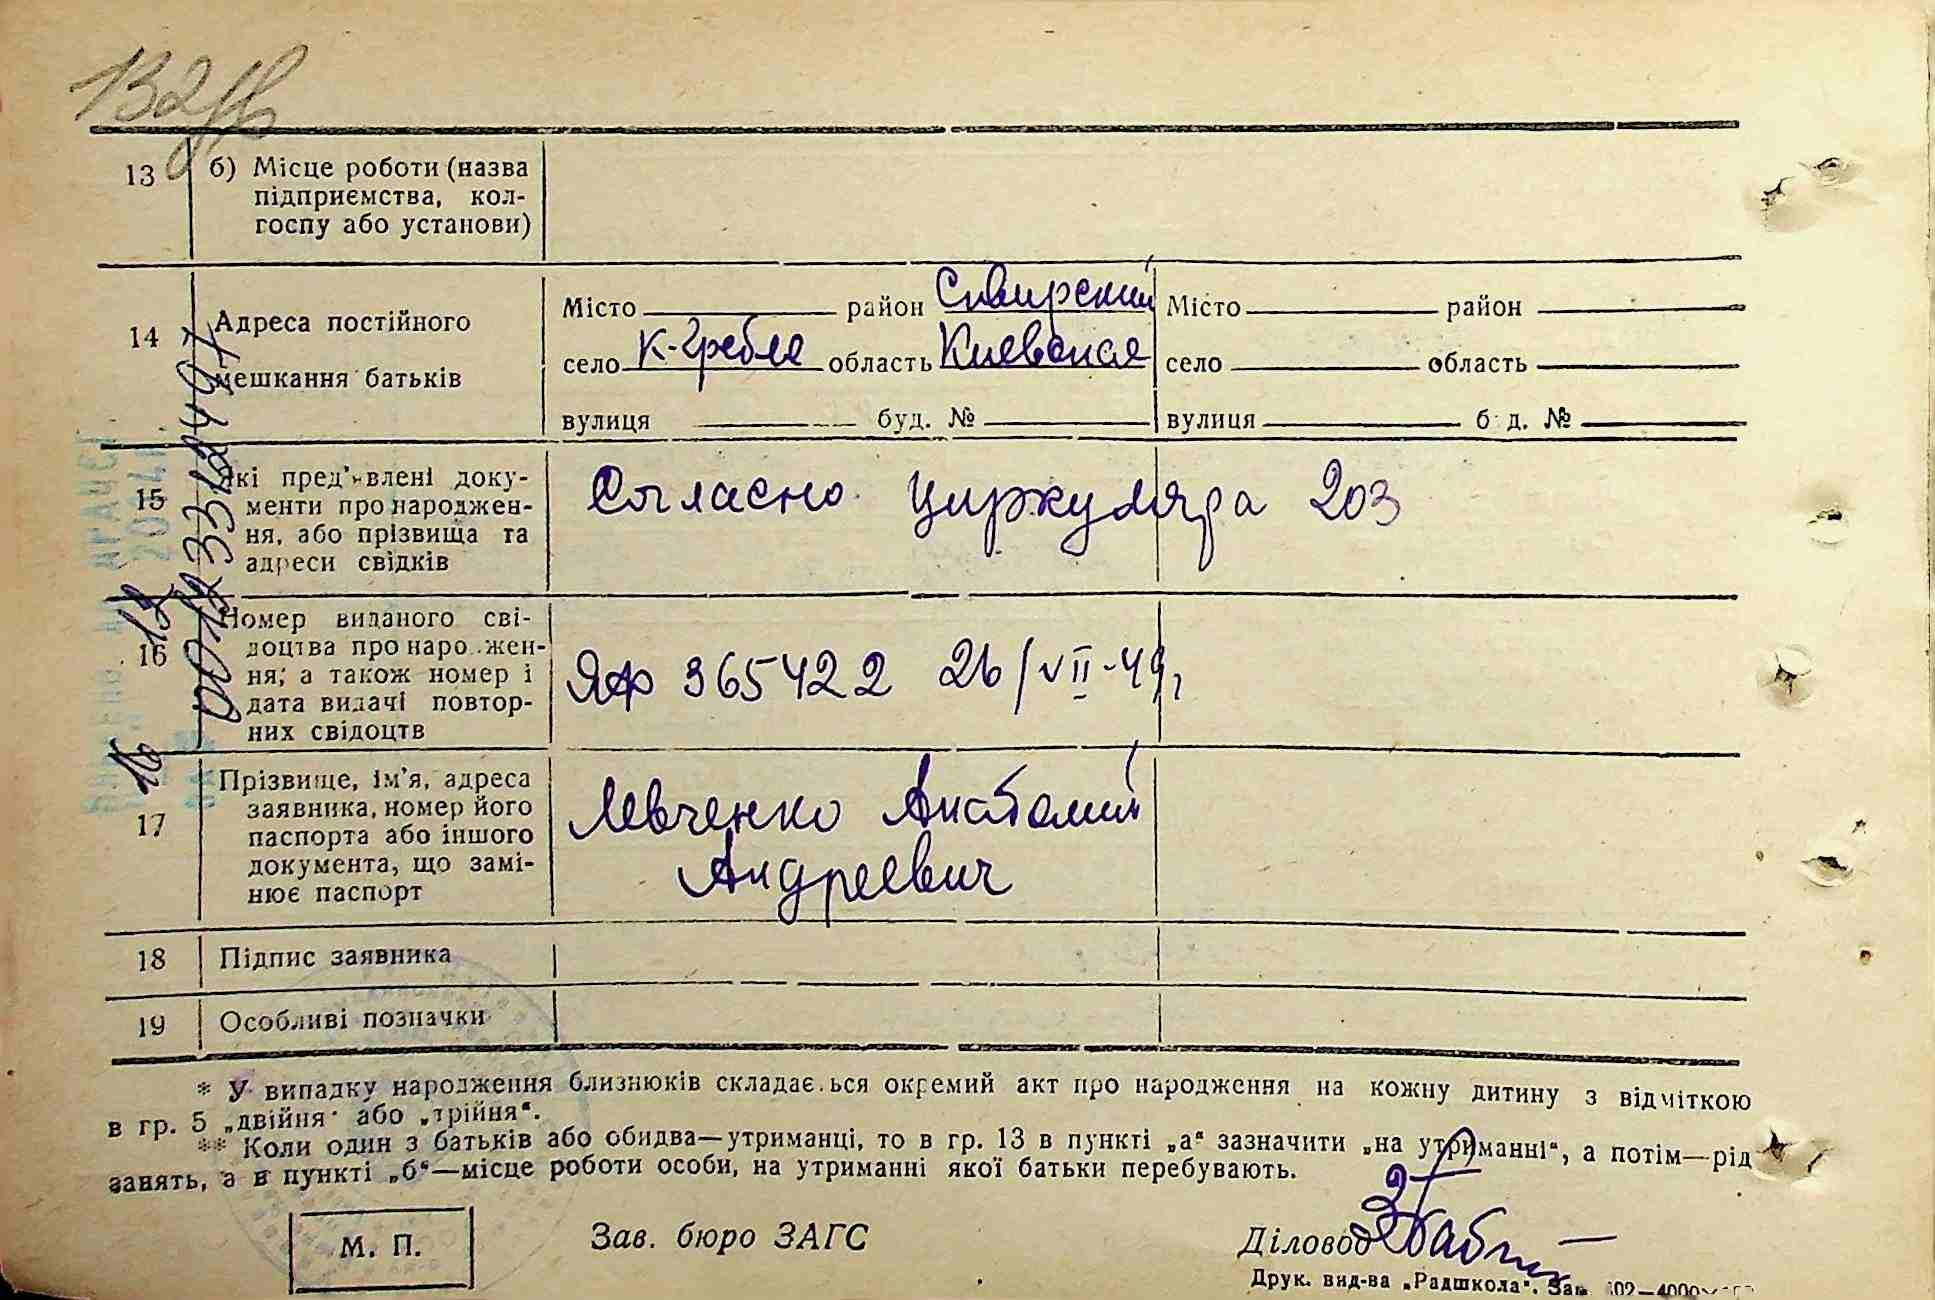 132
13 б) Місце роботи (назва
підприємства, кол-
госпу або установи)
14 Адреса постійного
мешкання батьків
Місто район Сквирский Місто район
село К-Гребля область Киевская село область
вулиця буд. № вулиця б д. №
15 Які пред'явлені доку-
менти про народжен-
ня, або прізвища та
адреси свідків
Согласно циркуляра 203
16 Номер виданого сві-
доцтва про народжен-
ня; а також номер і
дата видачі повтор-
них свідоцтв
ЯФ 365422 26/VII-49г
17 Прізвище, ім'я, адреса
заявника, номер його
паспорта або іншого
документа, що замі-
нює паспорт
Левченко Анатолий
Андреевич
18 Підпис заявника
19 Особливі позначки
* У випадку народження близнюків складається окремий акт про народження на кожну дитину з відміткою
в гр. 5 „двійня" або „трійня".
** Коли один з батьків або обидва—утриманці, то в гр. 13 в пункті „а" зазначити „на утриманні", а потім—рід
занять, а в пункті „б"—місце роботи особи, на утриманні якої батьки перебувають.
М. П. Зав. бюро ЗАГС Діловод
Друк. вид-ва „Радшкола". Зам. 602—4000